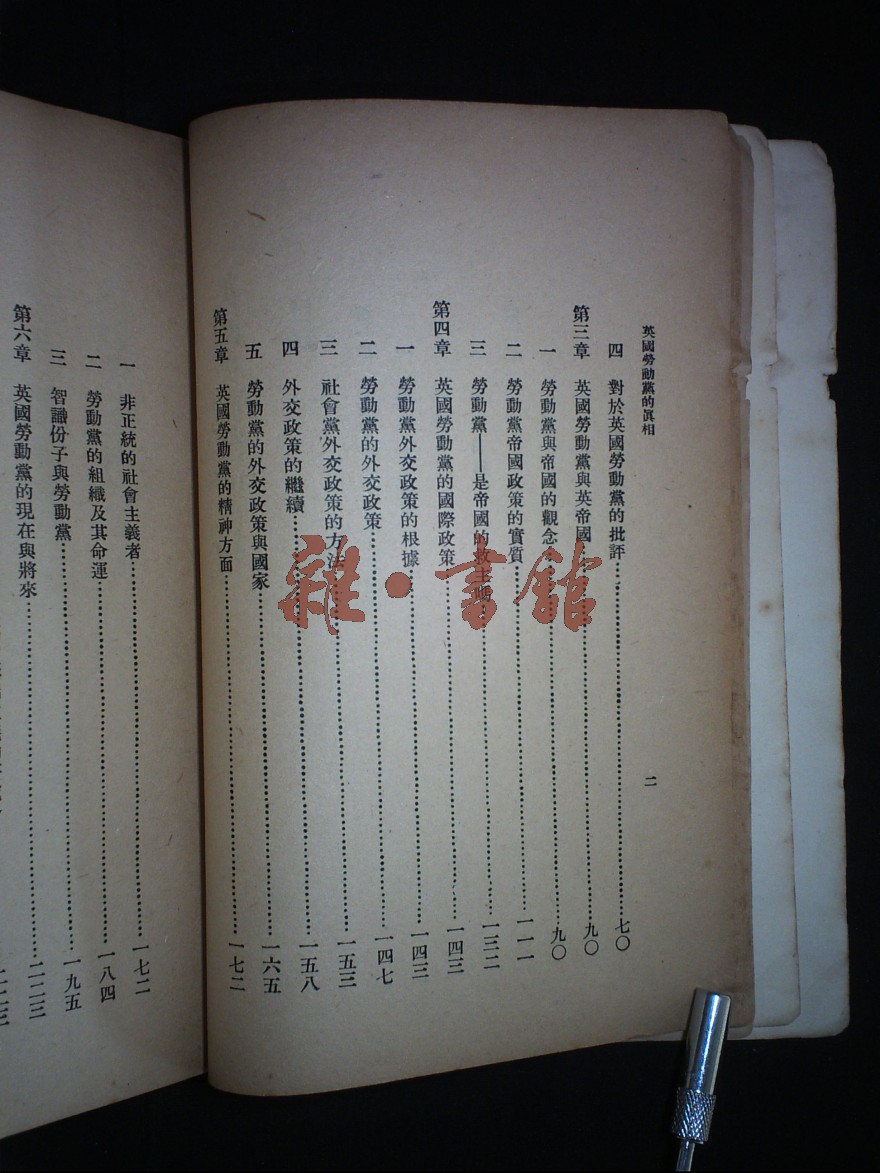 英國勞動黨的眞相
二
四 對於英國勞動黨的批評 七〇
第三章 英國勞動黨與英帝國 九〇
一 勞動黨與帝國的觀念 九〇
二 勞動黨帝國政策的實質 一一一
三 勞動黨——是帝國的救主嗎 一三二
第四章 英國勞動黨的國際政策 一四三
一 勞動黨外交政策的根據 一四三
二 勞動黨的外交政策 一四七
三 社會黨外交政策的方法 一五三
四 外交政策的繼續 一五八
五 勞動黨的外交政策與國家 一六五
第五章 英國勞動黨的精神方面 一七二
一 非正統的社會主義者 一七二
二 勞動黨的組織及其命運 一八四
三 智識份子與勞動黨 一九五
第六章 英國勞動黨的現在與將來 二二三
雜·書館